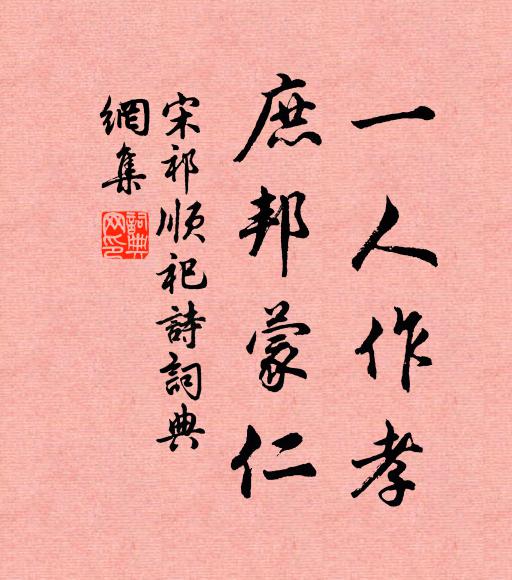 一人作孝
庶邦蒙仁
宋祁順祀詩詞典
網集
詞典網印